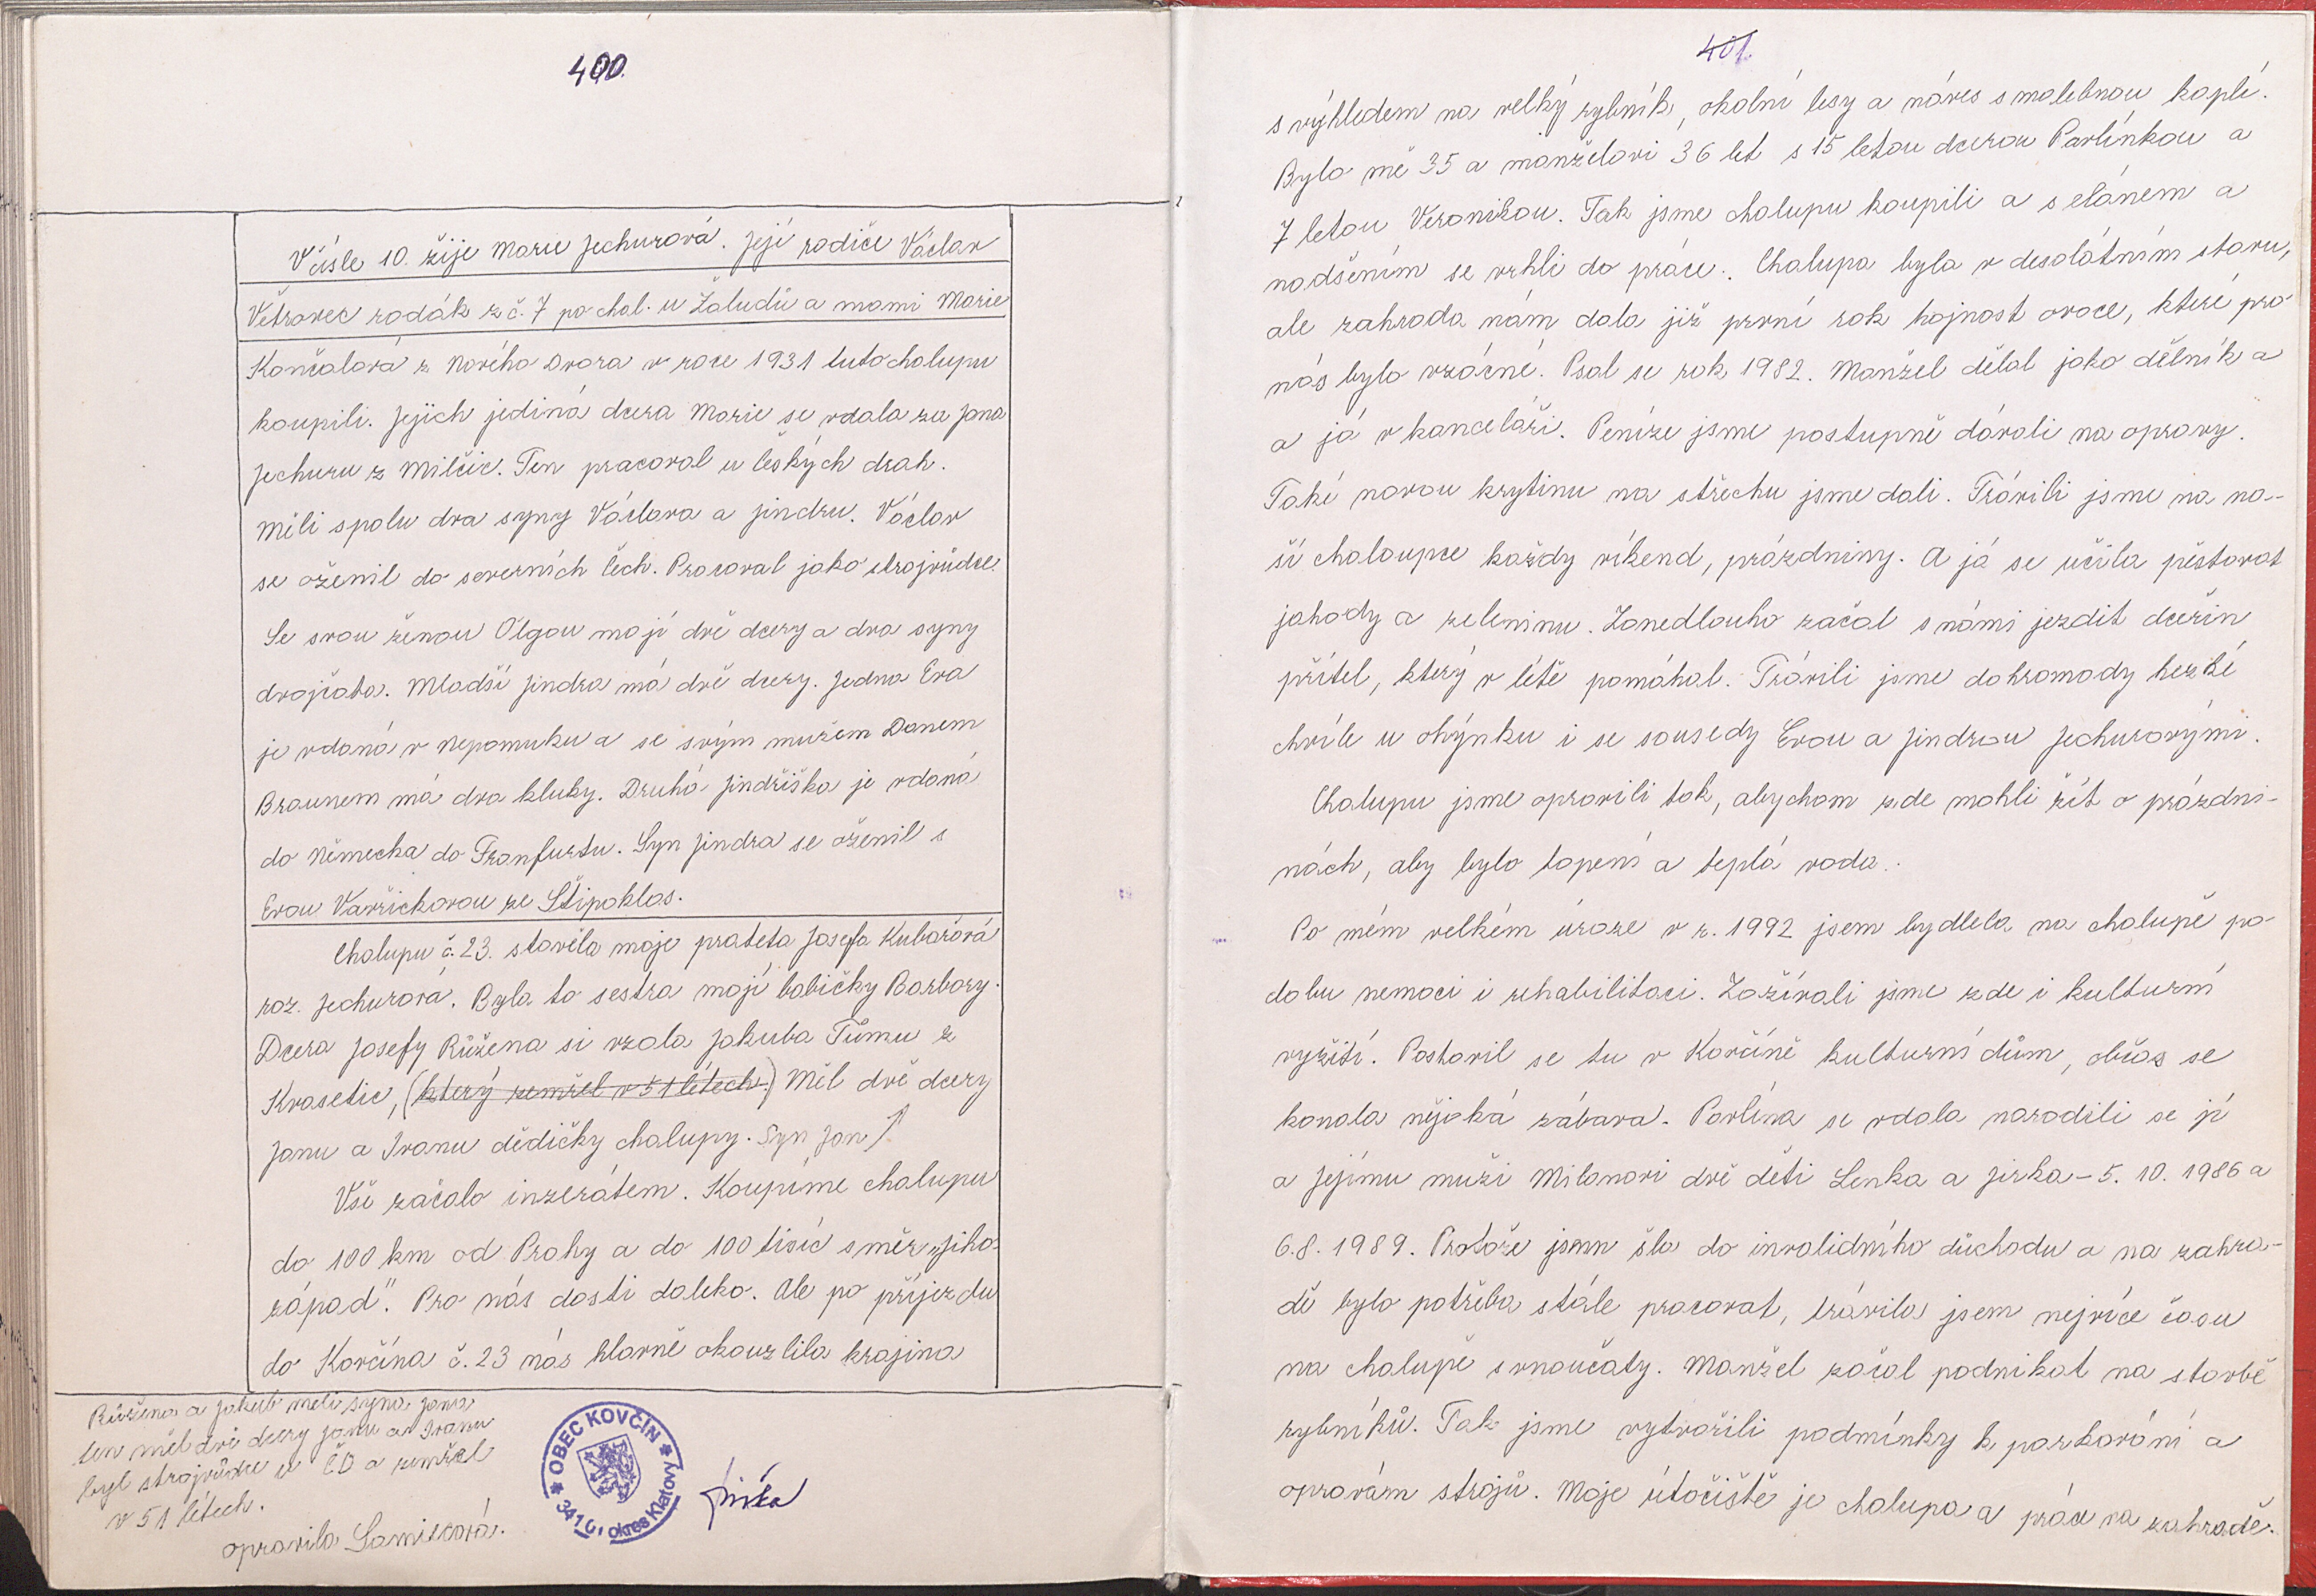 400.
V čísle 10. žije Marie Jechurová. Její rodiče Václav
Větrovec rodák z č. 7 po chal. u Žaludů a mami Marie
Končalová z Nového Dvora v roce 1931 tuto chalupu
koupili. Jejich jediná dcera Marie se vdala za Jana
Jechuru z Milčic. Ten pracoval u českých drah.
Měli spolu dva syny Václava a Jindru. Václav
se oženil do severních Čech. Pracoval jako strojvůdce.
Se svou ženou Olgou mají dvě dcery a dva syny
dvojčata. Mladší Jindra má dvě dcery. Jedna Eva
je vdaná v Nepomuku a se svým mužem Danem
Braunem má dva kluky. Druhá Jindřiška je vdaná
do Německa do Franfurtu. Syn Jindra se oženil s
Evou Vavřičkovou ze Štipoklas.
Chalupu č. 23. stavěla moje prateta Josefa Kubařová
roz. Jechurová. Byla to sestra mojí babičky Barbory.
Dcera Josefy Růžena si vzala Jakuba Tůmu z
Kvasetic, (který zemřel v 51 létech.) Měl dvě dcery
Janu a Ivanu dědičky chalupy. Syn Jan
Vše začalo inzerátem. Koupíme chalupu
do 100 km od Prahy a do 100 tisíc směr "jiho-
západ". Pro nás dosti daleko. Ale po příjezdu
do Kovčína č. 23 nás hlavně okouzlila krajina
Růžena a Jakub měli syna Jana
ten měl dvě dcery Janu a Ivanu
byl strojvůdce u ČD a zemřel
v 51 létech.
opravila
OBEC KOVČÍN
341 01 okres Klatovy
401.
s výhledem na velký rybník, okolní lesy a náves s malebnou kaplí.
Bylo mě 35 a manželovi 36 let s 15 letou dcerou Pavlínkou a
7 letou Veronikou. Tak jsme chalupu koupili a s elánem a
nadšením se vrhli do práce. Chalupa byla v desolátním stavu,
ale zahrada nám dala již první rok hojnost ovoce, které pro
nás bylo vzácné. Psal se rok 1982. Manžel dělal jako dělník a
a já v kanceláři. Peníze jsme postupně dávali na opravy.
Také novou krytinu na střechu jsme dali. Trávili jsme na na-
ší chaloupce každy víkend, prázdniny. A já se učila pěstovat
jahody a zeleninu. Zanedlouho začal s námi jezdit dceřin
přítel, který v létě pomáhal. Trávili jsme dohromady hezké
chvíle u ohýnku i se sousedy Evou a Jindrou Jechurovými.
Chalupu jsme opravili tak, abychom zde mohli žít o prázdni-
nách, aby bylo topení a teplá voda.
Po mém velkém úraze v r. 1992 jsem bydlela na chalupě po
dobu nemoci i rehabilitaci. Zažívali jsme zde i kulturní
vyžití. Postavil se tu v Kovčíně kulturní dům, občas se
konala nějaká zábava. Pavlína se vdala narodili se jí
a jejímu muži Milanovi dvě děti Lenka a Jirka - 5. 10. 1986 a
6. 8. 1989. Protože jsem šla do invalidního důchodu a na zahra-
dě bylo potřeba stále pracovat, trávila jsem nejvíce času
na chalupě s vnoučaty. Manžel začal podnikat na stavbě
rybníků. Tak jsme vytvořili podmínky k parkování a
opravám strojů. Moje útočiště je chalupa a práce na zahradě.